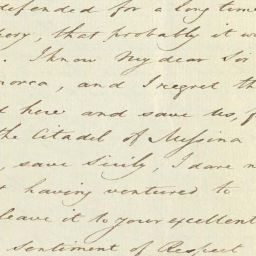 defended for a long time
ory, that probably it w
. I know My dear Sir
norca, and I regret th
d here and save us, f
the Citadel of Messina
, save Sicily, I dare n
t having ventured to
leave it to your excellent
sentiment of Respect